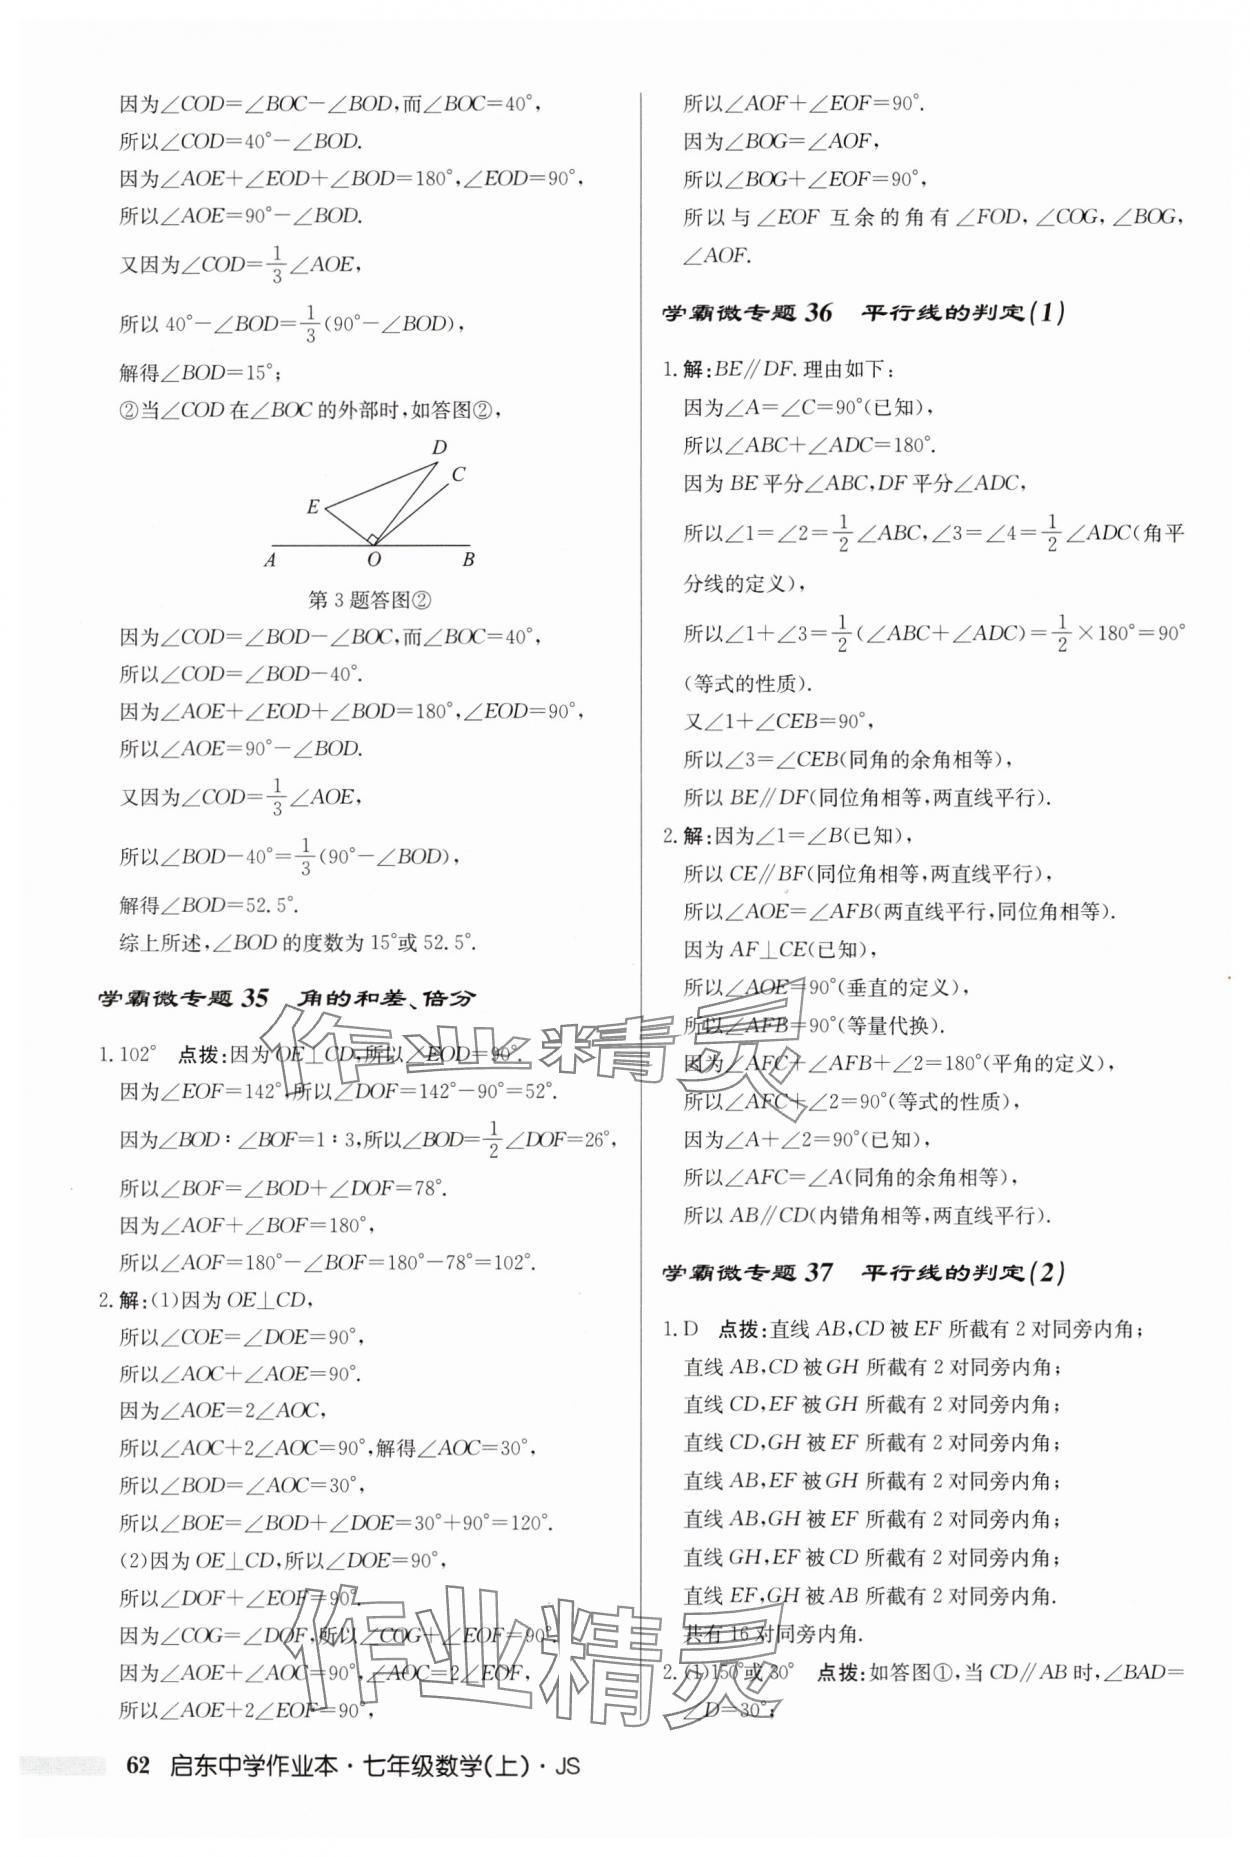 因为∠COD=∠BOC-∠BOD,而∠BOC=40°,
所以∠COD=40°-∠BOD.
因为∠AOE+∠EOD+∠BOD=180°,∠EOD=90°,
所以∠AOE=90°-∠BOD.
又因为∠COD=1/3∠AOE,
所以40°-∠BOD=1/3(90°-∠BOD),
解得∠BOD=15°;
②当∠COD在∠BOC的外部时,如答图②,
D
C
E
A O B
第3题答图②
因为∠COD=∠BOD-∠BOC,而∠BOC=40°,
所以∠COD=∠BOD-40°.
因为∠AOE+∠EOD+∠BOD=180°,∠EOD=90°,
所以∠AOE=90°-∠BOD.
又因为∠COD=1/3∠AOE,
所以∠BOD-40°=1/3(90°-∠BOD),
解得∠BOD=52.5°.
综上所述,∠BOD的度数为15°或52.5°.
学霸微专题35 角的和差、倍分
1.102° 点拨:因为OE⊥CD,所以∠EOD=90°.
因为∠EOF=142°,所以∠DOF=142°-90°=52°.
因为∠BOD∶∠BOF=1∶3,所以∠BOD=1/2∠DOF=26°,
所以∠BOF=∠BOD+∠DOF=78°.
因为∠AOF+∠BOF=180°,
所以∠AOF=180°-∠BOF=180°-78°=102°.
2.解:(1)因为OE⊥CD,
所以∠COE=∠DOE=90°,
所以∠AOC+∠AOE=90°.
因为∠AOE=2∠AOC,
所以∠AOC+2∠AOC=90°,解得∠AOC=30°,
所以∠BOD=∠AOC=30°,
所以∠BOE=∠BOD+∠DOE=30°+90°=120°.
(2)因为OE⊥CD,所以∠DOE=90°,
所以∠DOF+∠EOF=90°.
因为∠COG=∠DOF,所以∠COG+∠EOF=90°.
因为∠AOE+∠AOC=90°,∠AOC=2∠EOF,
所以∠AOE+2∠EOF=90°,
所以∠AOF+∠EOF=90°.
因为∠BOG=∠AOF,
所以∠BOG+∠EOF=90°,
所以与∠EOF互余的角有∠FOD,∠COG,∠BOG,
∠AOF.
学霸微专题36 平行线的判定(1)
1.解:BE∥DF.理由如下:
因为∠A=∠C=90°(已知),
所以∠ABC+∠ADC=180°.
因为BE平分∠ABC,DF平分∠ADC,
所以∠1=∠2=1/2∠ABC,∠3=∠4=1/2∠ADC(角平
分线的定义),
所以∠1+∠3=1/2(∠ABC+∠ADC)=1/2×180°=90°
(等式的性质).
又∠1+∠CEB=90°,
所以∠3=∠CEB(同角的余角相等),
所以BE∥DF(同位角相等,两直线平行).
2.解:因为∠1=∠B(已知),
所以CE∥BF(同位角相等,两直线平行),
所以∠AOE=∠AFB(两直线平行,同位角相等).
因为AF⊥CE(已知),
所以∠AOE=90°(垂直的定义),
所以∠AFB=90°(等量代换).
因为∠AFC+∠AFB+∠2=180°(平角的定义),
所以∠AFC+∠2=90°(等式的性质),
因为∠A+∠2=90°(已知),
所以∠AFC=∠A(同角的余角相等),
所以AB∥CD(内错角相等,两直线平行).
学霸微专题37 平行线的判定(2)
1.D 点拨:直线AB,CD被EF所截有2对同旁内角;
直线AB,CD被GH所截有2对同旁内角;
直线CD,EF被GH所截有2对同旁内角;
直线CD,GH被EF所截有2对同旁内角;
直线AB,EF被GH所截有2对同旁内角;
直线AB,GH被EF所截有2对同旁内角;
直线GH,EF被CD所截有2对同旁内角;
直线EF,GH被AB所截有2对同旁内角.
共有16对同旁内角.
2.(1)150°或30° 点拨:如答图①,当CD∥AB时,∠BAD=
∠D=30°;
作业精灵
作业精灵
62 启东中学作业本·七年级数学(上)·JS